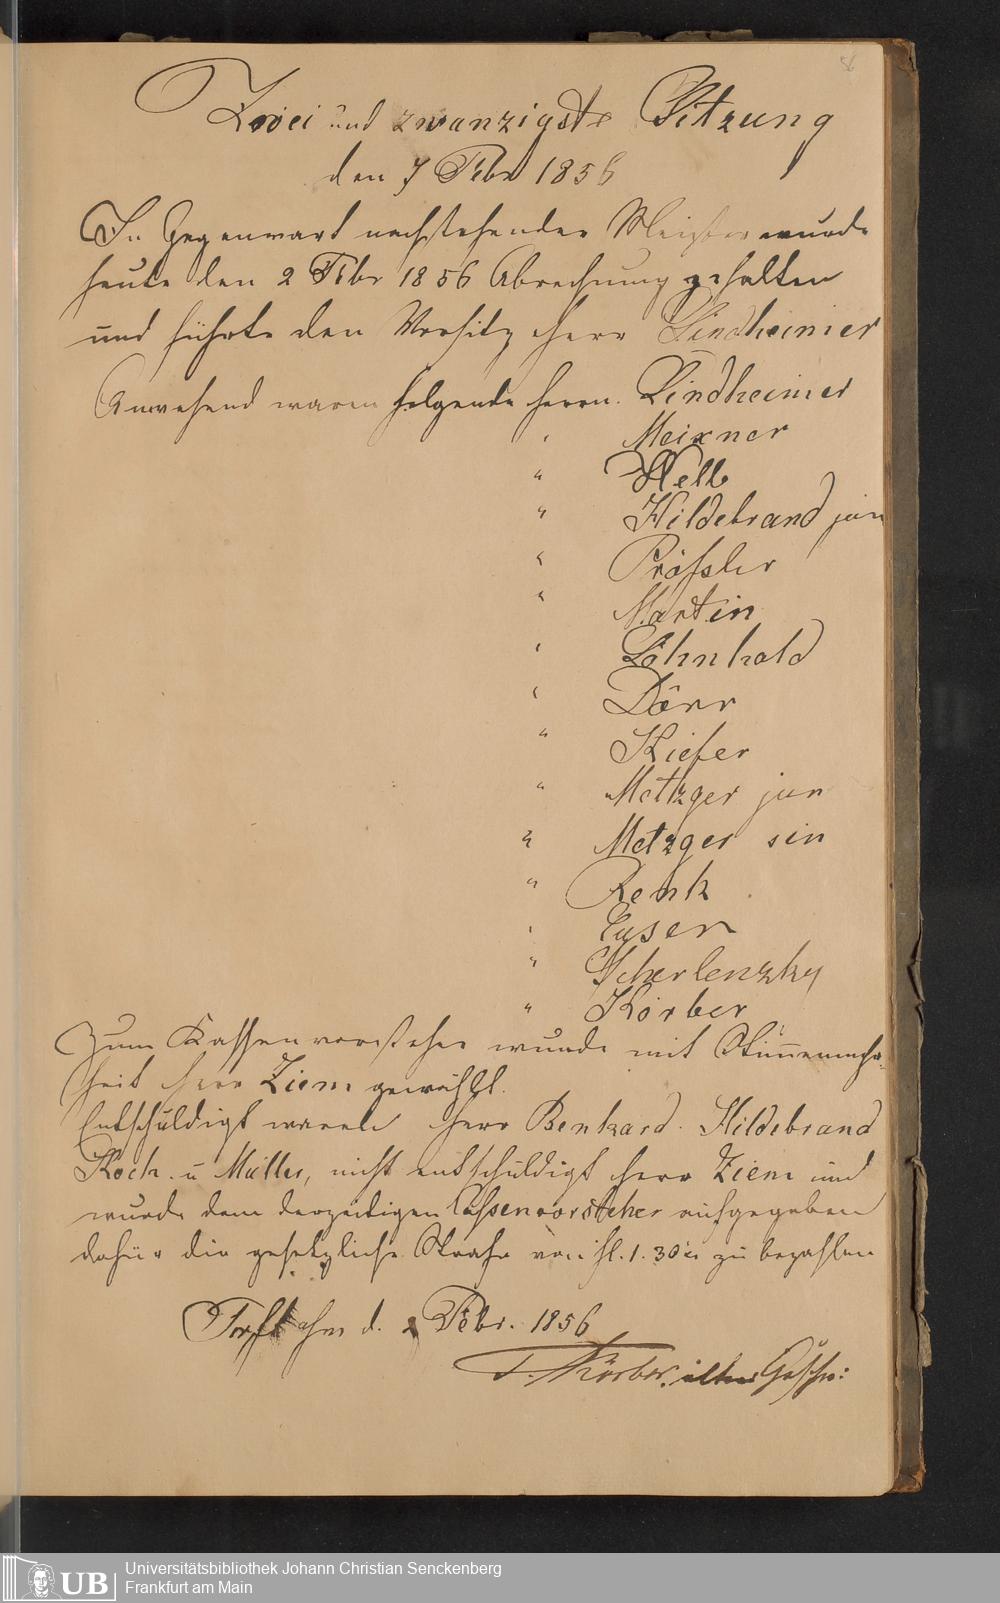 Zwei und zwanzigste Sitzung
den 7 Febr 1856
In Gegenwart nachstehender Meister wurde
heute den 2 Febr 1856 Abrechnung gehalten
und führte den Vorsitz Herr Lindheimer
Anwesend waren folgende Herrn. Lindheimer
" Meixner
" Welb
" Hildebrand jun
" Pröfsler
" Martin
" Löhnhold
" Dörr
" Kiefer
" Metzger jun
" Metzger sen
" Renk
" Eyser
" Scherlenzky
" Körber
Zum Kassenvorsteher wurde mit Stimmenmehr-
heit Herr Ziem gewählt.
Entschuldigt waren Herr Benkard. Hildebrand
Koch. u Müller, nicht entschuldigt Herr Ziem und
wurde dem derzeitigen Cassenvorsteher aufgegeben
dafür die gesetzliche Strafe von fl. 1. 30 xr zu bezahlen
d. 2 Febr. 1856
Körber
56
UB
Universitätsbibliothek Johann Christian Senckenberg
Frankfurt am Main